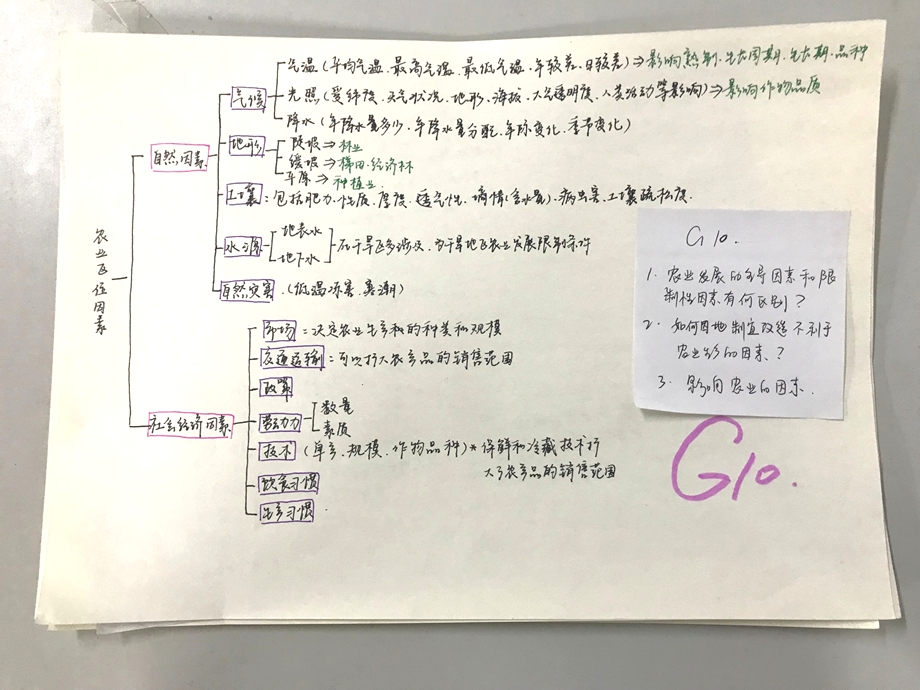 农业区位因素
自然因素
气候
气温（平均气温、最高气温、最低气温、年较差、日较差）⇒影响熟制、生长周期、生长期、品种
光照（受纬度、天气状况、地形、海拔、大气透明度、人类活动等影响）⇒影响作物品质
降水（年降水量多少、年降水量分配、年际变化、季节变化）
地形
陡坡⇒林业
缓坡⇒梯田、经济林
平原⇒种植业
土壤：包括肥力、性质、厚度、透气性、墒情（含水量）、病虫害、土壤疏松度.
水源
地表水
地下水
在干旱区多涉及，为干旱地区农业发展限制条件
自然灾害（低温冻害、寒潮）
社会经济因素
市场：决定农业生产的种类和规模
交通运输：可以扩大农产品的销售范围
政策
劳动力
数量
素质
技术（单产、规模、作物品种）*保鲜和冷藏技术扩
大了农产品的销售范围
饮食习惯
生产习惯
G10.
1. 农业发展的主导因素和限
制性因素有何区别？
2. 如何因地制宜改造不利于
农业生产的因素？
3. 影响农业的因素.
G10.